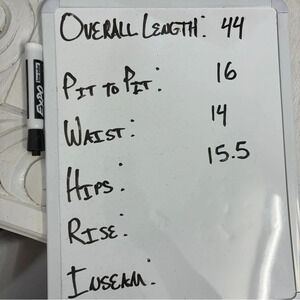 OVERALL LENGTH: 44
PIT TO PIT: 16
WAIST: 14
HIPS: 15.5
RISE:
INSEAM:
EXPO